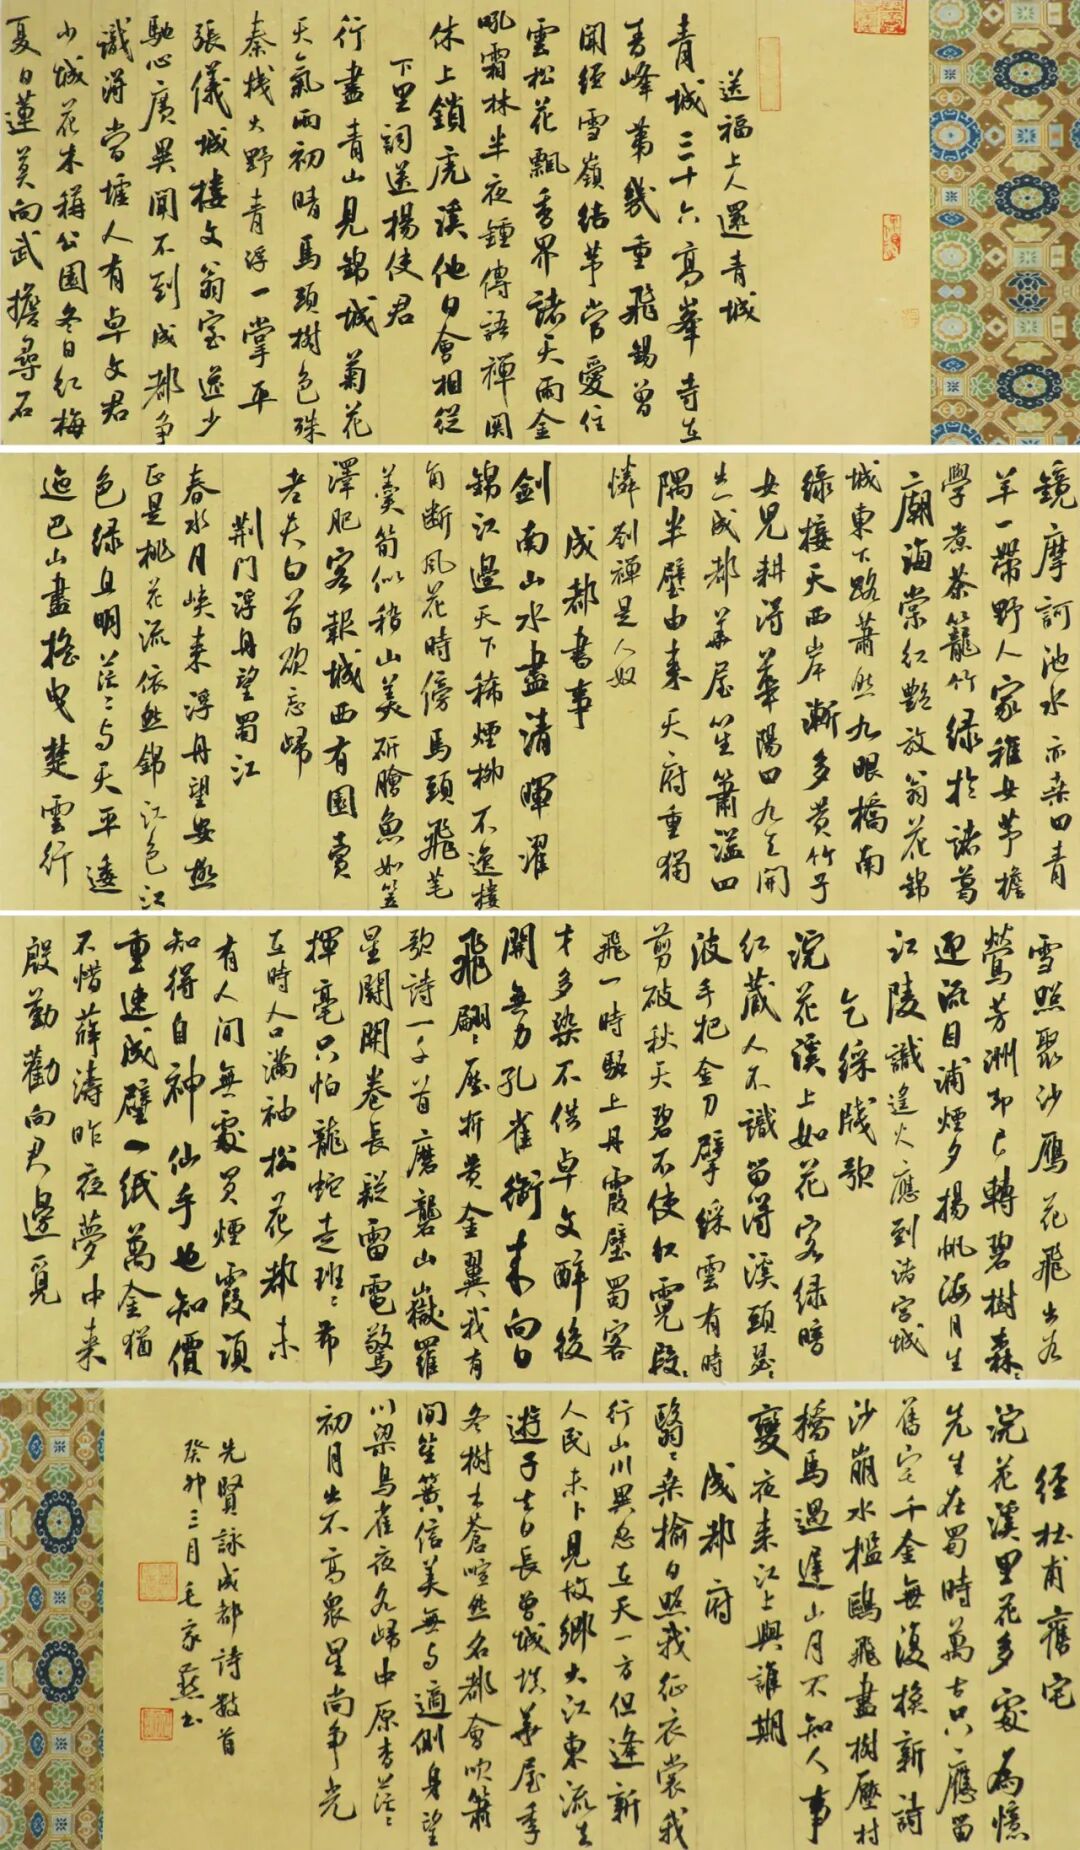 送福上人還青城
青城三十六高峯寺在
青峰第幾重飛錫曾
聞經雪嶺結茅常愛住
雲松花飄香界諸天雨金
吼霜林半夜鍾傳語禪関
休上鎖虎溪他日會相從
下里詞送楊使君
行盡青山見錦城菊花
天氣雨初晴馬頭樹色殊
秦棧大野青浮一掌平
張儀城樓文翁室送少
馳心廣異聞不到成都争
識得當壚人有卓文君
小城花木稱公園冬日紅梅
夏日蓮莫向武擔尋石
鏡摩訶池水亦桑田青
羊一帶野人家稚女茅檐
學煮茶籠竹緑於諸葛
廟海棠紅艷放翁花錦
城東下路蕭然九眼橋南
緑接天西岸漸多黄竹子
女兒耕得華陽田九天開
出一成都萬屋笙簫溢四
隅半壁由来天府重獨
憐劉禪是人奴
成都書事
劍南山水盡清暉濯
錦江邊天下稀煙柳不遮樓
角断風花時傍馬頭飛芼
羹筍似稽山美斫膾魚如笠
澤肥客報城西有園賣
老夫白首欲忘歸
荆門浮舟望蜀江
春水月峽来浮舟望安極
正是桃花流依然錦江色江
色緑且明茫々与天平逶
迤巴山盡搖曳楚雲行
雪照聚沙雁花飛出谷
鶯芳洲却已轉碧樹森々
迎流目浦煙夕揚帆海月生
江陵識遥火應到渚宫城
乞綵牋歌
浣花溪上如花客緑暗
紅藏人不識留得溪頭瑟々
波手把金刀擘綵雲有時
剪破秋天碧不使紅霓段々
飛一時驅上丹霞壁蜀客
才多染不供卓文醉後
開無力孔雀銜来向日
飛翩々壓折黄金翼我有
歌詩一千首磨礱山嶽羅
星鬬開卷長疑雷電驚
揮毫只怕龍蛇走班々布
在時人口滿袖松花都未
有人間無處買煙霞須
知得自神仙手也知價
重連城璧一紙萬金猶
不惜薛濤昨夜夢中来
殷勤勸向君邊覓
經杜甫舊宅
浣花溪里花多處為憶
先生在蜀時萬古只應留
舊宅千金無復換新詩
沙崩水檻鷗飛盡樹壓村
橋馬過遲山月不知人事
變夜来江上與誰期
成都府
翳々桑榆日照我征衣裳我
行山川異忽在天一方但逢新
人民未卜見故鄉大江東流去
遊子去日長曾城填華屋季
冬樹木蒼喧然名都會吹簫
間笙簧信美無与適側身望
川梁鳥雀夜各歸中原杳茫々
初月出不高衆星尚争光
先賢詠成都詩數首
癸卯三月毛家燕书